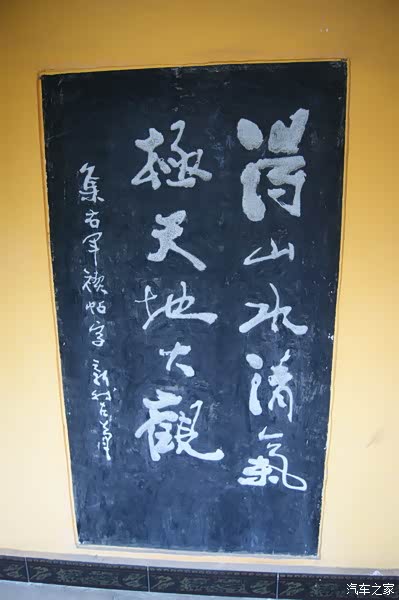 得山水清氣
極天地大觀
集右軍禊帖字
汽车之家